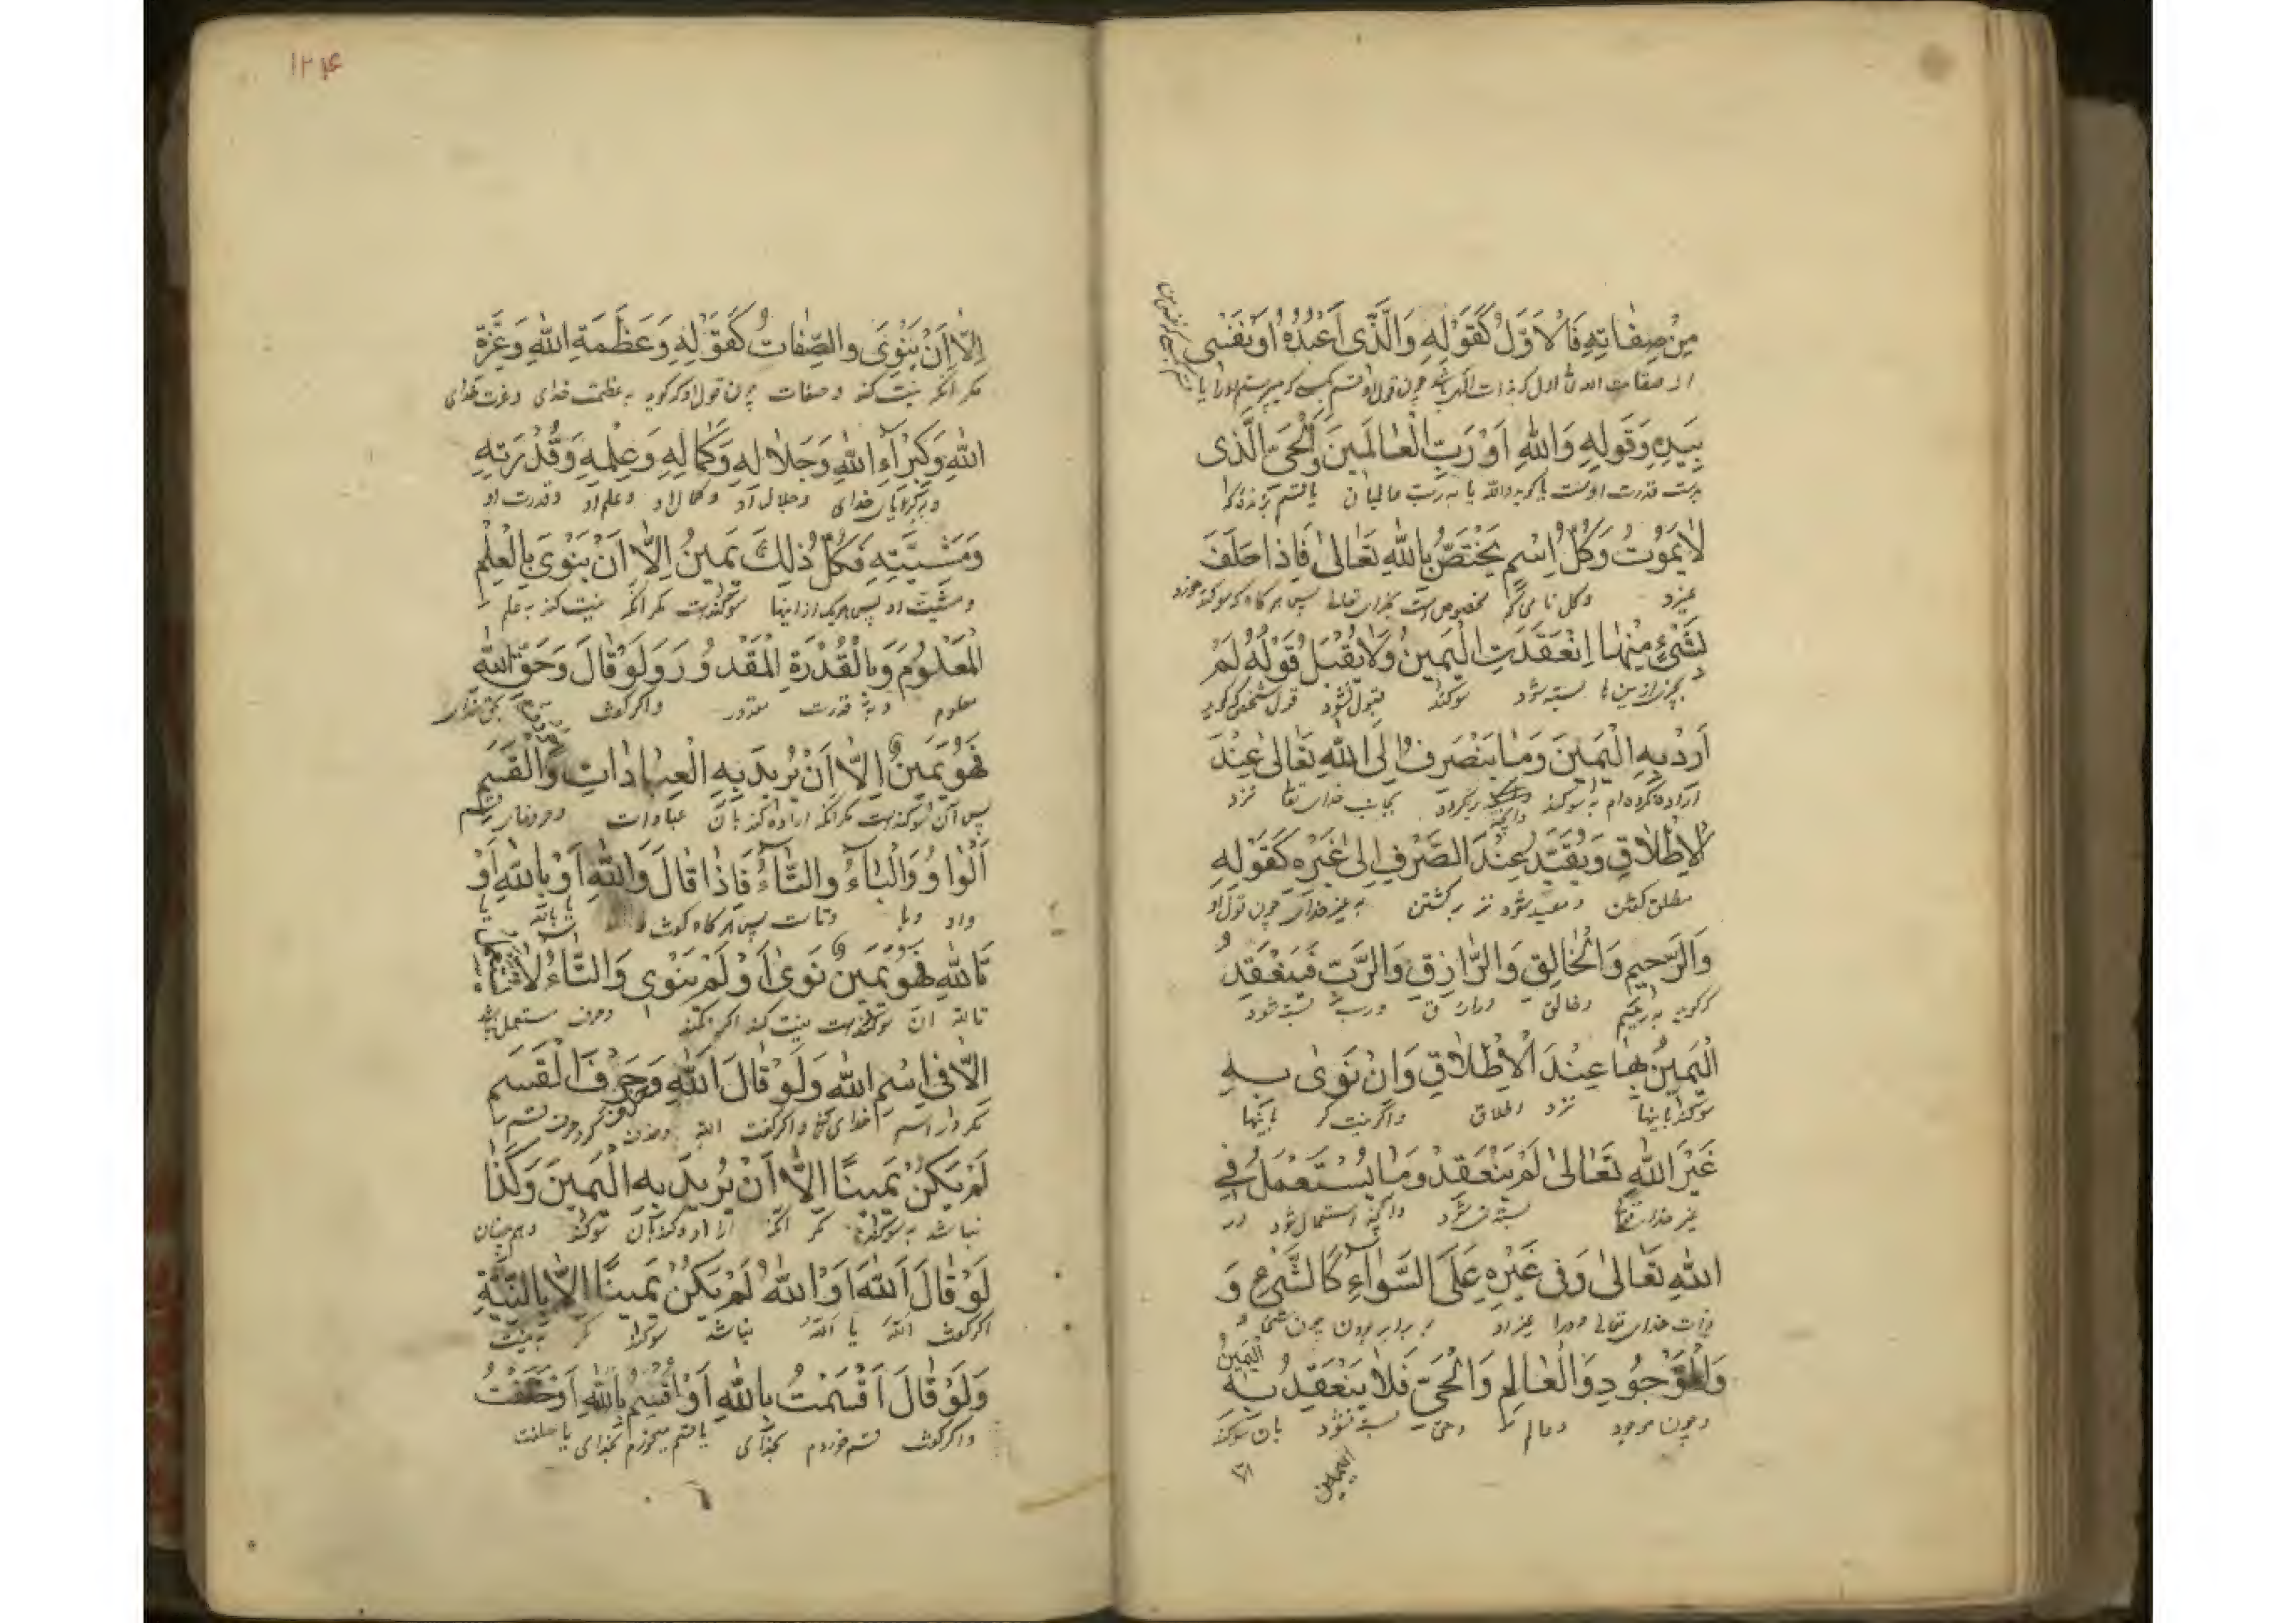 مِنْ صِفَاتِهِ فَالْاَوَّلُ كَقَوْلِهِ وَالَّذِی اَعْبُدُهُ اَوْ نَفْسِی
بِیَدِهِ وَقَولِهِ وَاللهِ اَوْ رَبِّ الْعٰالَمِینَ وَالْحَیِّ الَّذی
بدست قدرت اوست یا کوید والله یا به رب عالمیان یا قسم بزنده که
لاٰیَمُوتُ وَکُلُّ اِسْمٍ یَخْتَصُّ بِاللهِ تَعٰالیٰ فَاِذا حَلَفَ
نمیرد و کل نامی که مخصوص است بخدای تعالی پس هرکاه که سوکند خورد
بِشَیْءٍ مِنْهٰا اِنْعَقَدَتِ الْیَمِینُ وَلاٰ یُقْبَلُ قَوْلُهُ لَمْ
بچیزی ازین ها بسته شود سوکند قبول نشود قول شخصی که کوید
اَرِدْ بِهِ الْیَمِینَ وَمٰا یَنْصَرِفُ اِلَی اللهِ تَعٰالیٰ عِنْدَ
اراده نکرده ام به سوکند برکردد بجانب خدای تعا نزد
الْاِطْلاٰقِ وَیُقَیَّدُ عِنْدَ الصَّرْفِ اِلیٰ غَیْرِهِ کَقَوْلِهِ
مطلق کفتن و مقید شود نزد برکشتن به غیر خدای چون قول او
وَالرَّحیمِ وَالْخٰالِقِ وَالرّٰازِقِ وَالرَّبِّ فَیَنْعَقِدُ
که کوید به رحیم و خالق و رازق و رب بسته شود
الْیَمِینُ بِهٰا عِنْدَ الْاِطْلاٰقِ وَاِنْ نَوٰی بِهِ
سوکند باینها نزد اطلاق و اکر نیت کر باینها
غَیْرَ اللهِ تَعٰالیٰ لَمْ یَنْعَقِدْ وَمٰا یُسْتَعْمَلُ فِی
غیر خدای بسته نشود و آنچه استعمال شود در
اللهِ تَعٰالیٰ وَفی غَیْرِهِ عَلَی السَّوٰآءِ کَالشَّیْءِ وَ
ذات خدای تعالی و در غیر او برابر بودن چون شیء و
الْیَمِینُ
وَالْمَوْجُودِ وَالْعٰالِمِ وَالْحَیِّ فَلاٰ یَنْعَقِدُ بِهِ
و چون موجود و عالم و حی بسته نشود بان سوکند
اِلّاٰ اَنْ یَنْوِیَ وَالصِّفٰاتُ کَقَوْلِهِ وَعَظَمَةِ اللهِ وَعِزَّةِ
مکر آنکه نیت کند و صفات چون قول او که کوید به عظمت خدای و عزت خدای
اللهِ وَکِبْرِآءِ اللهِ وَجَلاٰلِهِ وَکَمٰالِهِ وَعِلْمِهِ وَقُدْرَتِهِ
خدای و جلال او و کمال او و علم او و قدرت او
وَمَشِیَّتِهِ فَکُلُّ ذٰلِکَ یَمِینٌ اِلّاٰ اَنْ یَنْوِیَ بِالْعِلْمِ
و مشیت او پس هریک از اینها سوکند است مکر آنکه نیت کند به علم
الْمَعْلُومَ وَبِالْقُدْرَةِ الْمَقْدُورَ وَلَوْ قٰالَ وَحَقِّ اللهِ
معلوم و به قدرت مقدور و اکر کوید بحق خدای
فَهُوَ یَمِینٌ اِلّاٰ اَنْ یُرِیدَ بِهِ الْعِبٰادٰاتِ وَالْقَسَمِ
پس آن سوکند است مکر آنکه اراده کند بان عبادات و حروف
اَلْوٰاوُ وَالْبٰاءُ وَالتّٰاءُ فَاِذٰا قٰالَ وَاللهِ اَوْ بِاللهِ اَوْ
واو و با و تاست پس هرکاه کوید
تَاللهِ فَهُوَ یَمِینٌ نَوٰی اَوْ لَمْ یَنْوِی وَالتّٰاءُ لاٰ
تالله آن سوکند است نیت کند اکر نکند
اِلّاٰ فِی اِسْمِ اللهِ وَلَوْ قٰالَ اَللهِ وَحَرْفَ الْقَسَمِ
مکر در اسم خدای و اکر کفت الله
لَمْ یَکُنْ یَمِینًا اِلّاٰ اَنْ یُرِیدَ بِهِ الْیَمِینَ وَکَذٰا
نباشد سوکند مکر آنکه اراده کند بان سوکند و همچنان
لَوْ قٰالَ اَللهَ اَوْ اللهُ لَمْ یَکُنْ یَمِینًا اِلّاٰ بِالنِّیَّةِ
اکر کوید الله یا الله نباشد سوکند مکر به نیت
وَلَوْ قٰالَ اَقْسَمْتُ بِاللهِ اَوْ اُقْسِمُ بِاللهِ اَوْ حَلَفْتُ
و اکر کوید قسم خوردم بخدای یا قسم میخورم بخدای یا حلفت